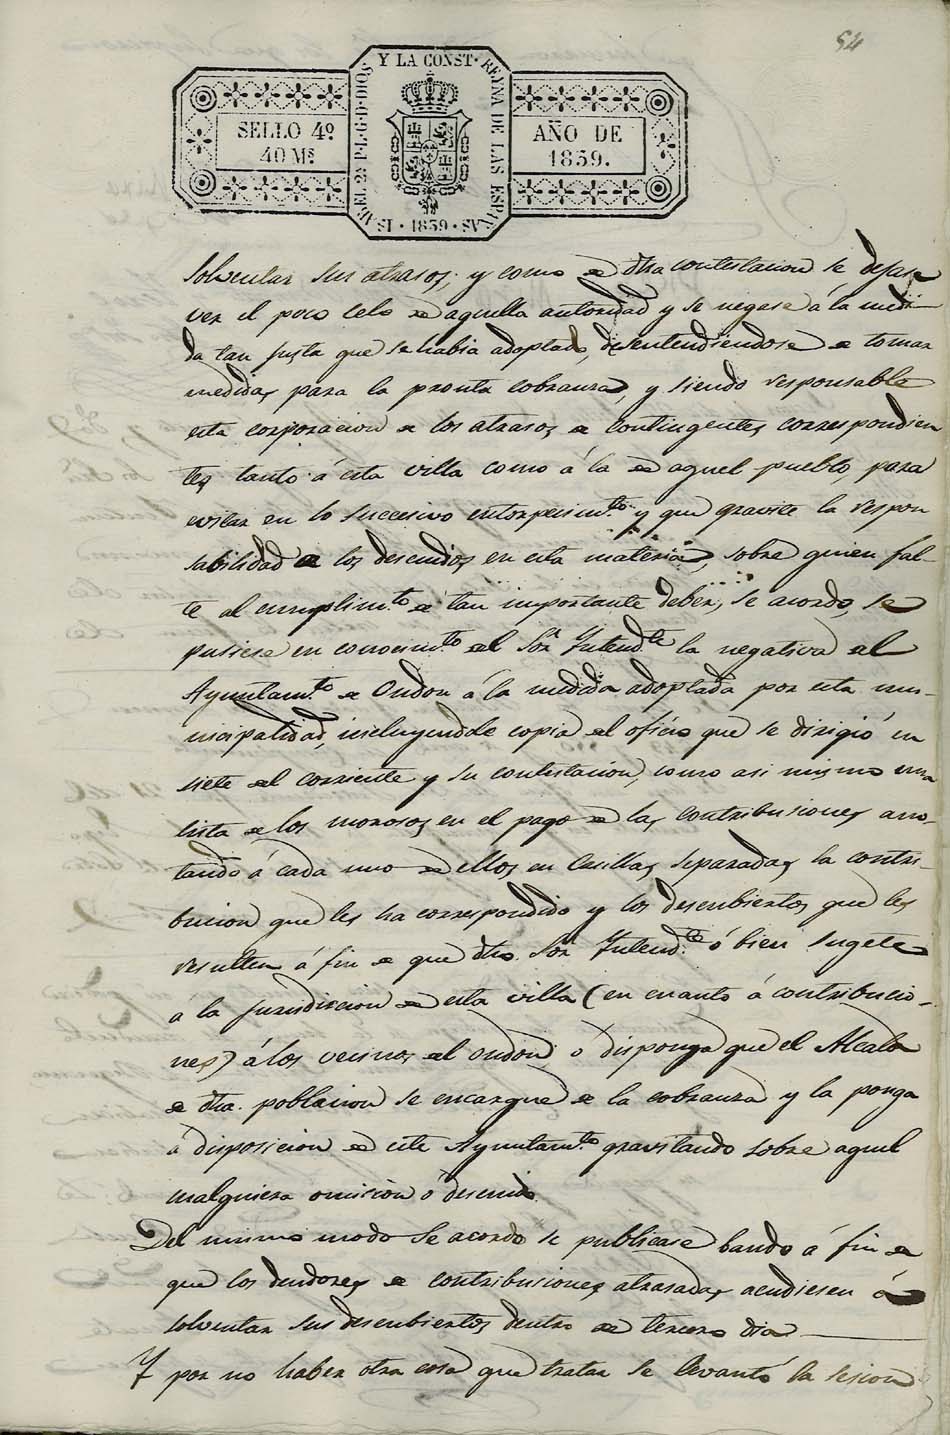 54
SELLO 4º
40 Ms
ISABEL 2ª P. L. G. D. DIOS Y LA CONST. REYNA DE LAS ESPAÑAS
· 1859 ·
AÑO DE
1859.
solventar sus atrasos; y como de dha contestacion se dejase
ver el poco celo de aquella autoridad y se negase á la medi-
da tan justa que se habia adoptado, desentendiendose de tomar
medidas para la pronta cobranza, y siendo responsable
esta corporacion de los atrasos de contingentes correspondien
tes tanto á esta villa como á la de aquel pueblo, para
evitar en lo succesivo entorpecimtos y que gravite la respon
sabilidad de los descuidos en esta materia, sobre quien fal-
te al cumplimto de tan importante deber, se acordó, se
pusiese en conocimto del Sor Intendte la negativa del
Ayuntamto de Ondon á la medida adoptada por esta mu-
nicipalidad, incluyendole copia del oficio que se dirigió en
siete del corriente y su contestacion, como asi mismo una
lista de los morosos en el pago de las contribuciones ano-
tando á cada uno de ellos en casillas separadas la contri-
bucion que les ha correspondido y los descubiertos que les
resulten á fin de que dho. Sor Intendte ó bien sugete
á la jurisdiccion de esta villa (en cuanto á contribucio-
nes) á los vecinos del Ondon, ó disponga que el Alcalde
de dha. poblacion se encargue de la cobranza y la ponga
á disposicion de este Ayuntamto gravitando sobre aquel
cualquiera omision ó descuido.
Del mismo modo se acordó se publicase bando á fin de
que los deudores de contribuciones atrasadas acudiesen á
solventar sus descubiertos dentro de tercero dia
Y por no haber otra cosa que tratar se levantó la sesion